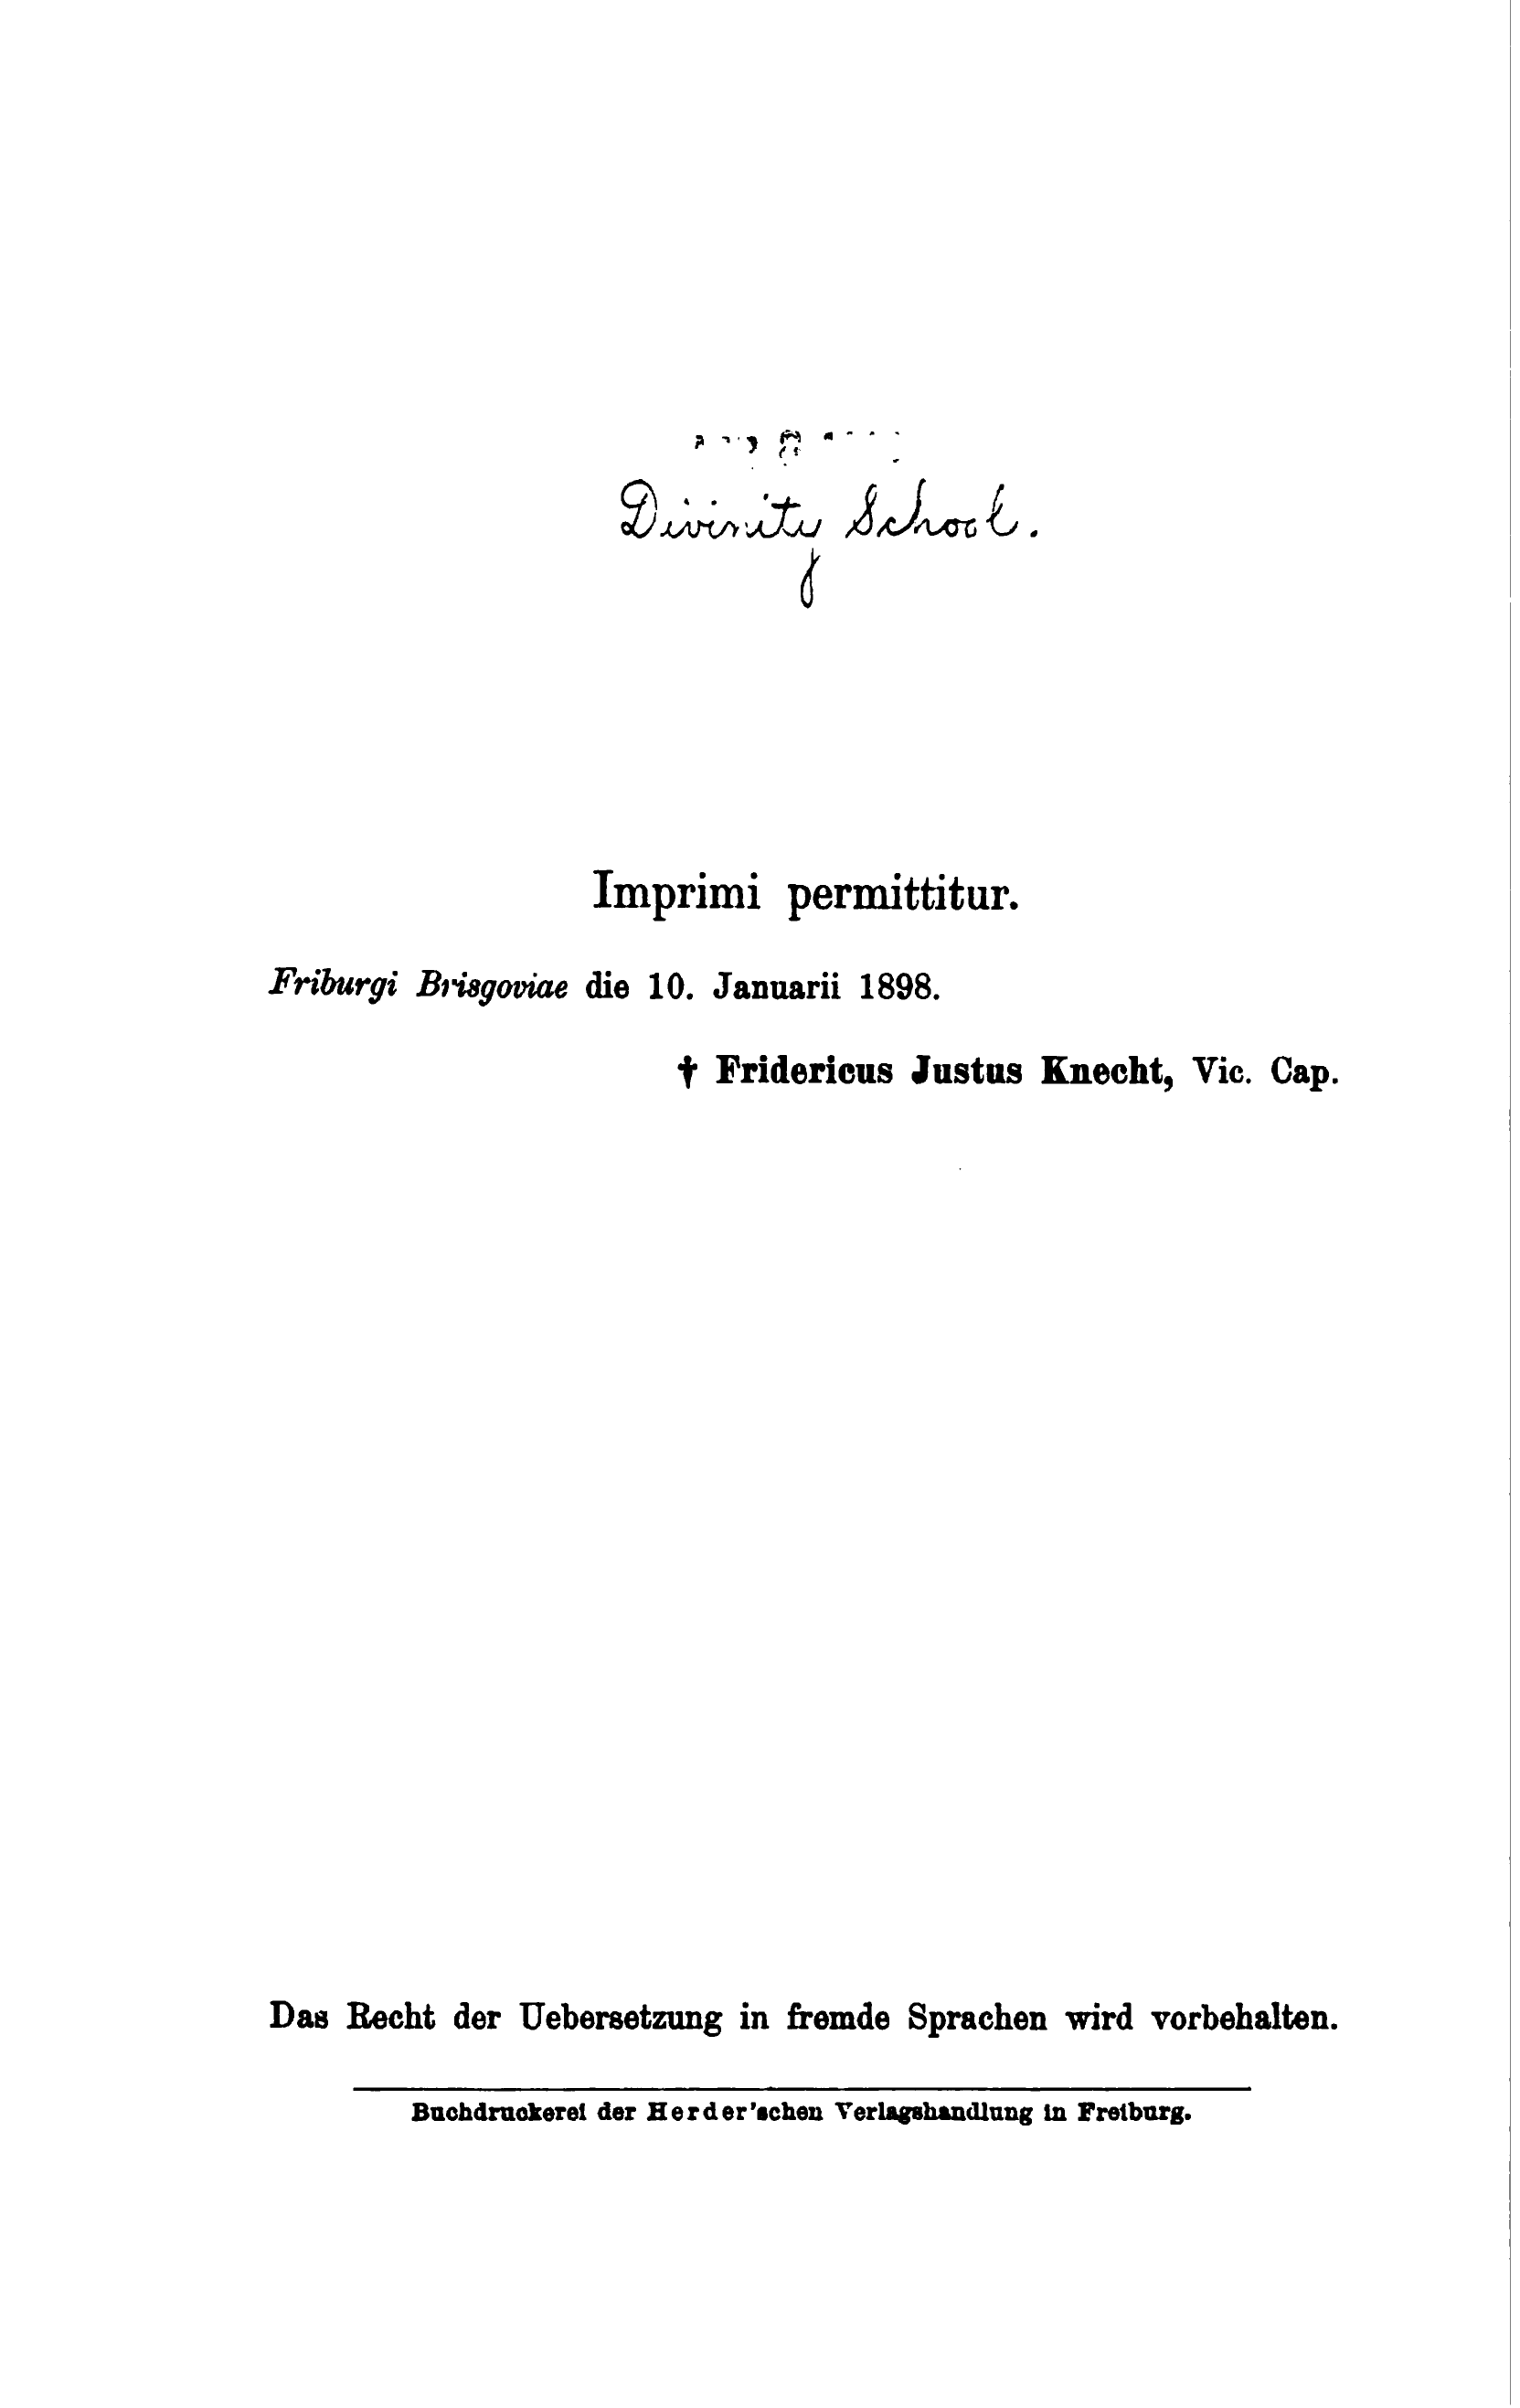 Divinity School.
Imprimi permittitur.
Friburgi Brisgoviae die 10. Januarii 1898.
† Fridericus Justus Knecht, Vic. Cap.
Das Recht der Uebersetzung in fremde Sprachen wird vorbehalten.
Buchdruckerei der Herder'schen Verlagshandlung in Freiburg.